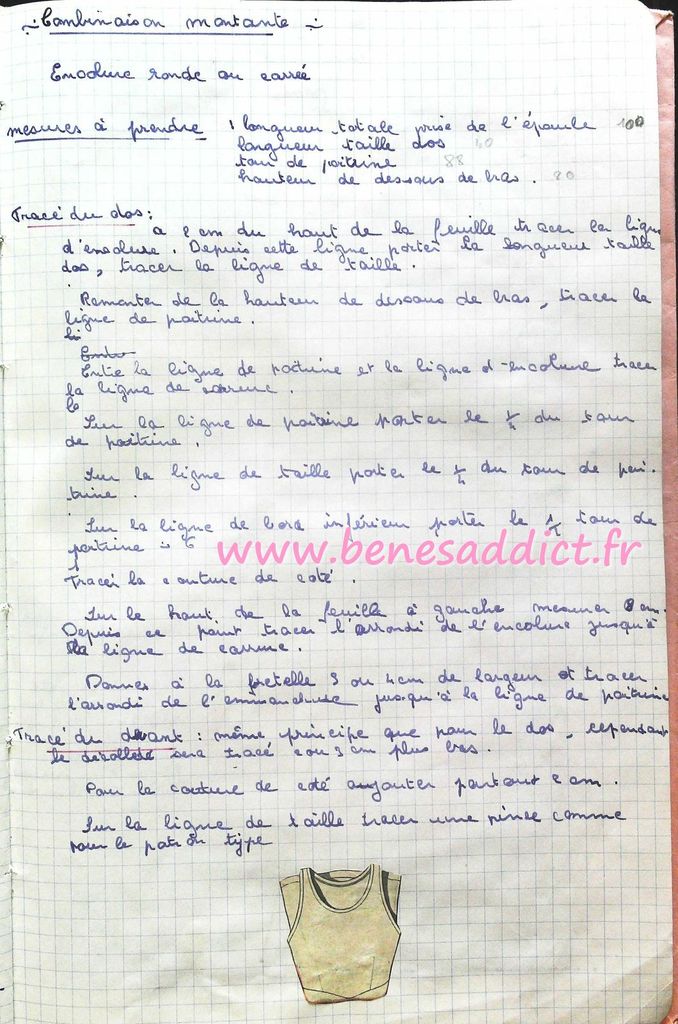 ÷ Combinaison montante ÷
Encolure ronde ou carrée
mesures à prendre : longueur totale prise de l'épaule 100
longueur taille dos 40
tour de poitrine 88
hauteur de dessous de bras . 20
Tracé du dos :
a 2 cm du haut de la feuille tracer la ligne
d'encolure . Depuis cette ligne porter la longueur taille
dos, tracer la ligne de taille .
Remonter de la hauteur de dessous de bras, tracer la
ligne de poitrine .
li
Entre
Entre la ligne de poitrine et la ligne d'encolure tracer
la ligne de carrure .
le
Sur la ligne de poitrine porter le 1/4 du tour
de poitrine .
Sur la ligne de taille porter le 1/4 du tour de poi-
trine .
Sur la ligne de bord inférieur porter le 1/4 tour de
poitrine + 6
www.benesaddict.fr
Tracer la couture de coté .
Sur le haut de la feuille à gauche mesurer 8 cm.
Depuis ce point tracer l'arrondi de l'encolure jusqu'à
la ligne de carrure .
Donner à la bretelle 3 ou 4 cm de largeur et tracer
l'arrondi de l'emmanchure jusqu'à la ligne de poitrine
Tracé du devant : même principe que pour le dos, cependant
le décolleté sera tracé 2 ou 3 cm plus bas .
Pour la couture de coté ajouter partout 2 cm .
Sur la ligne de taille tracer une pince comme
pour le patron type